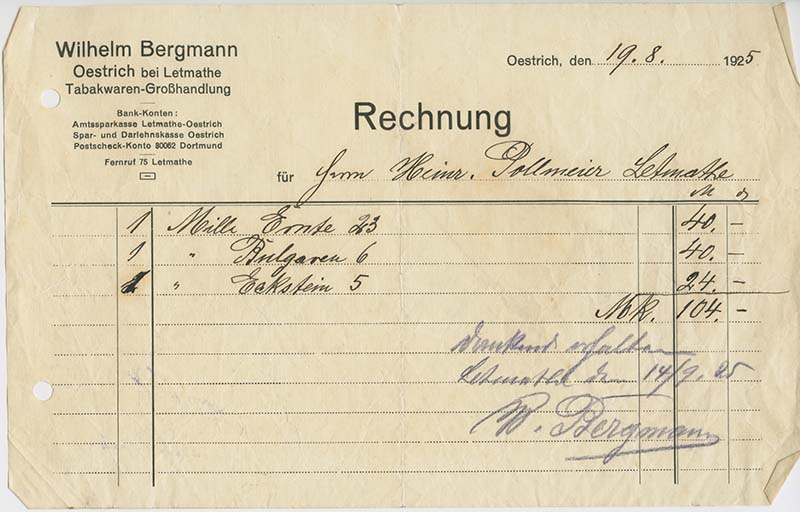 Wilhelm Bergmann
Oestrich bei Letmathe
Tabakwaren-Großhandlung
Bank-Konten:
Amtssparkasse Letmathe-Oestrich
Spar- und Darlehnskasse Oestrich
Postscheck-Konto 80062 Dortmund
Fernruf 75 Letmathe
Oestrich, den 19. 8. 1925
Rechnung
für Herrn Heinr. Pollmeier Letmathe
M ₰
1 Mille Ernte 23 40. –
1 " Bulgaren 6 40. –
1 " Eckstein 5 24. –
Mk. 104. –
Dankend erhalten
Letmathe den 14/9. 25
W. Bergmann